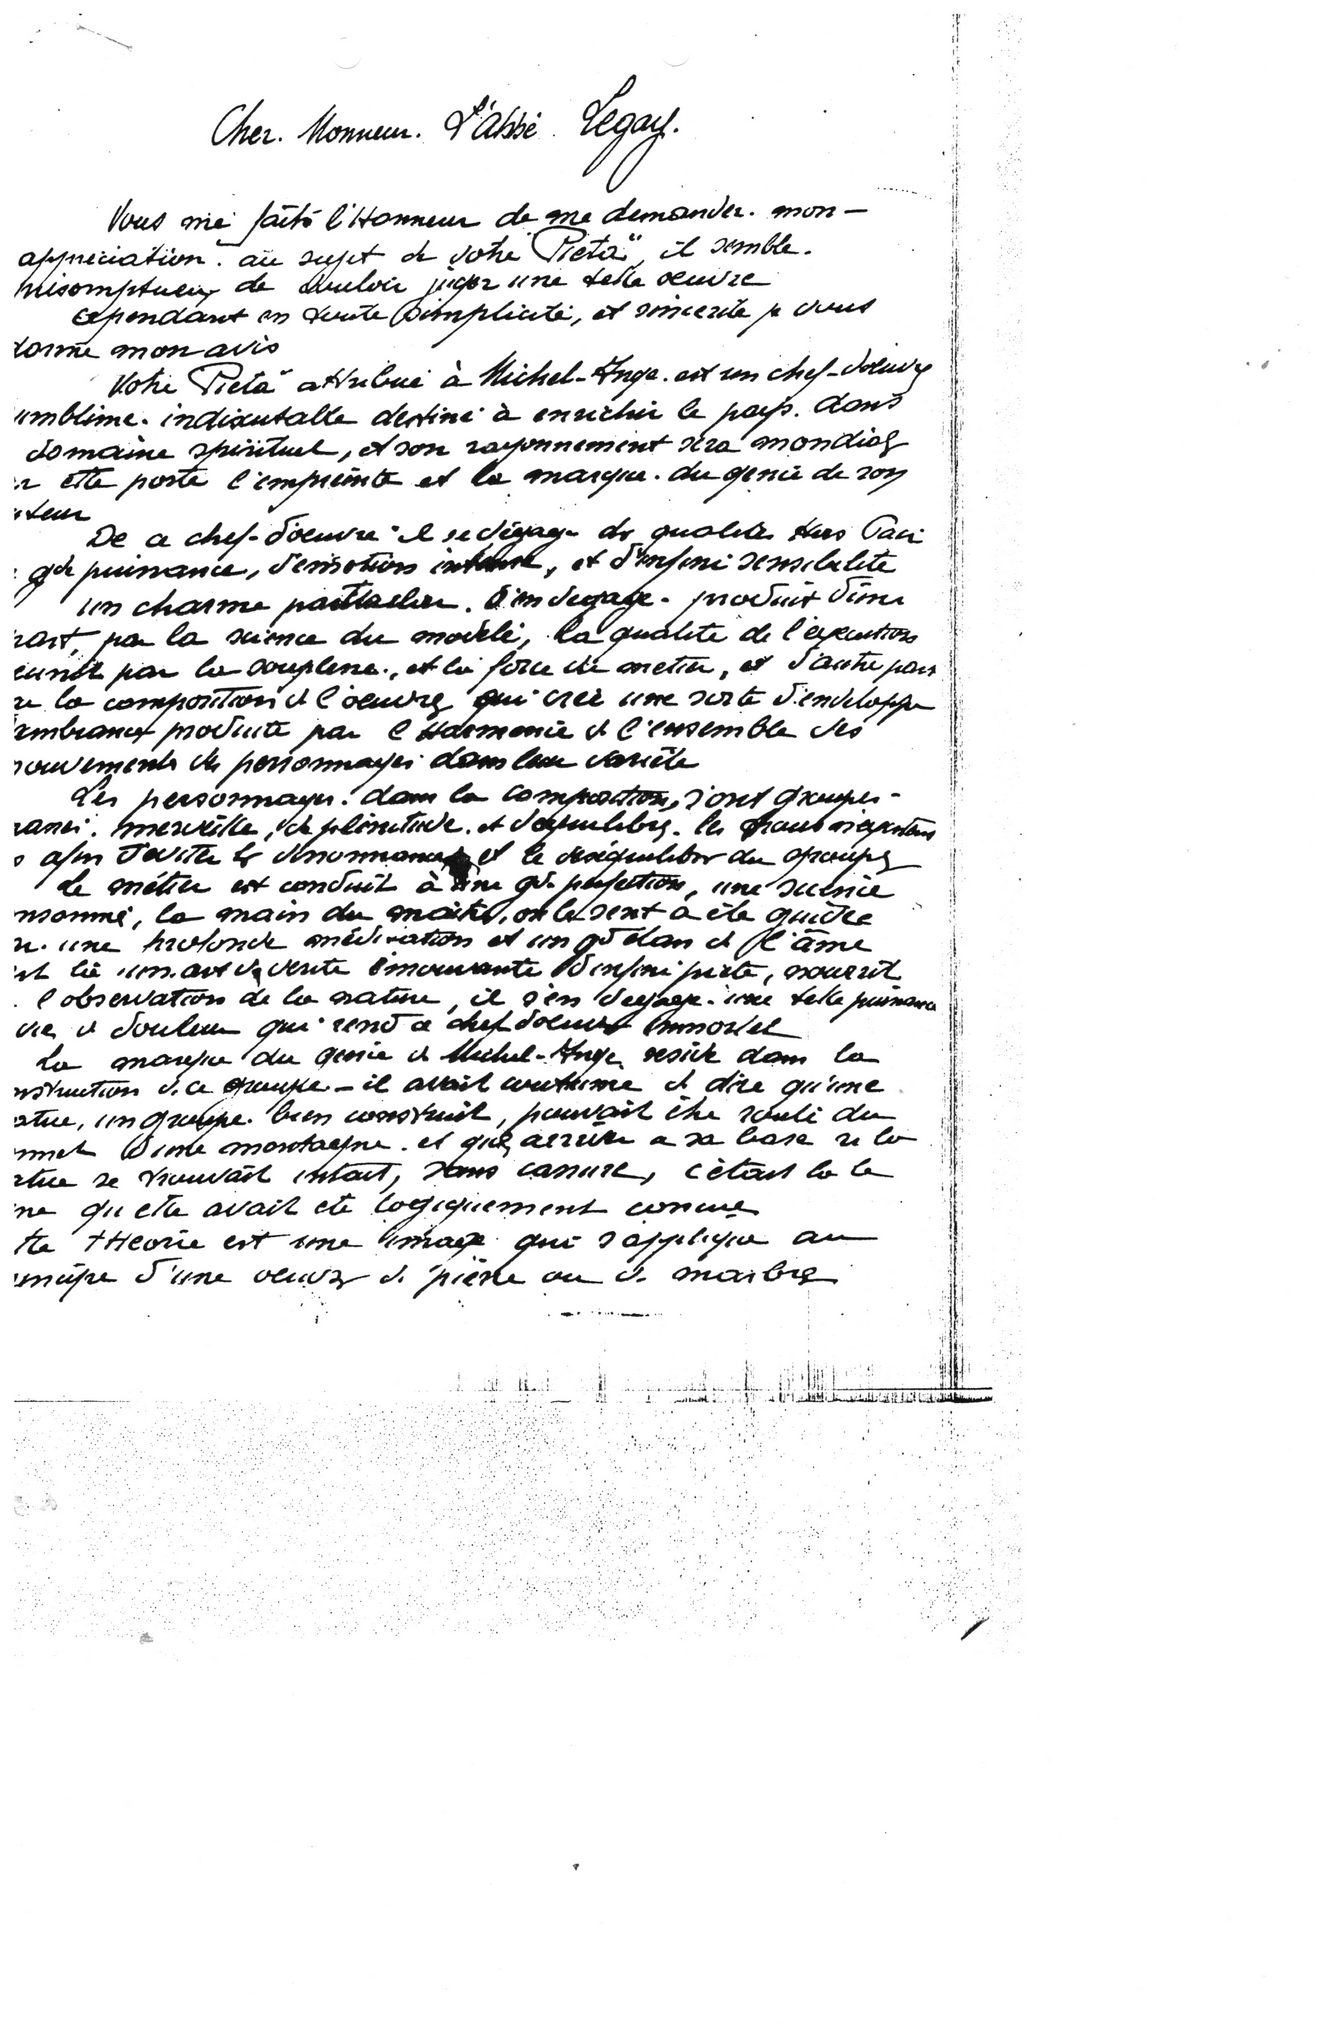 Cher. Monsieur. L'Abbé Legay.
Vous me faîtes l'Honneur de me demander. mon –
appreciation. au sujet de votre "Pieta", il semble.
présomptueux de vouloir juger une telle oeuvre
cependant en toute simplicité, et sincerité je vous
donne mon avis
Votre "Pieta" attribué à Michel-Ange. est un chef-d'oeuvre
sublime. indiscutable destiné à enrichir le pays. dans
domaine spirituel, et son rayonnement sera mondial
elle porte l'empreinte et la marque. du genie de son
De ce chef-d'oeuvre il se dégage des qualités
gde puissance, d'emotion intense, et d'infini sensibilité
un charme particulier. s'en degage. produit d'une
part, par la science du modelé, la qualité de l'execution
par la souplesse., et la force du metier, et d'autre part
la composition de l'oeuvre qui crée une sorte d'enveloppe
produite par l'Harmonie de l'ensemble des
mouvements des personnages dans leur variété
Les personnages. dans la composition, sont groupés –
merveille, de plénitude. et d'equilibre. les
afin d'eviter les dissonnances et le deséquilibre du groupe
Le métier est conduit à une gde perfection, une science
nsommé, la main du maître, on le sent a été guidée
une profonde méditation et un gd élan de l'âme
là un art de verité émouvante d'infini pieté, nourrit
l'observation de la nature, il s'en degage. une telle puissance
de douleur qui rend ce chef d'oeuvre immortel
La marque du genie de Michel-Ange reside dans la
nstruction de ce groupe – il avait coutume de dire qu'une
atue, un groupe. bien construit, pouvait être roulé du
mmet d'une montagne. et que, arrivée a sa base si la
atue se trouvait intact, sans cassure, c'était la le
ne qu'elle avait ete logiquement concue
tte tHeorie est une image qui s'applique au
incipe d'une oeuvre de pierre ou de marbre